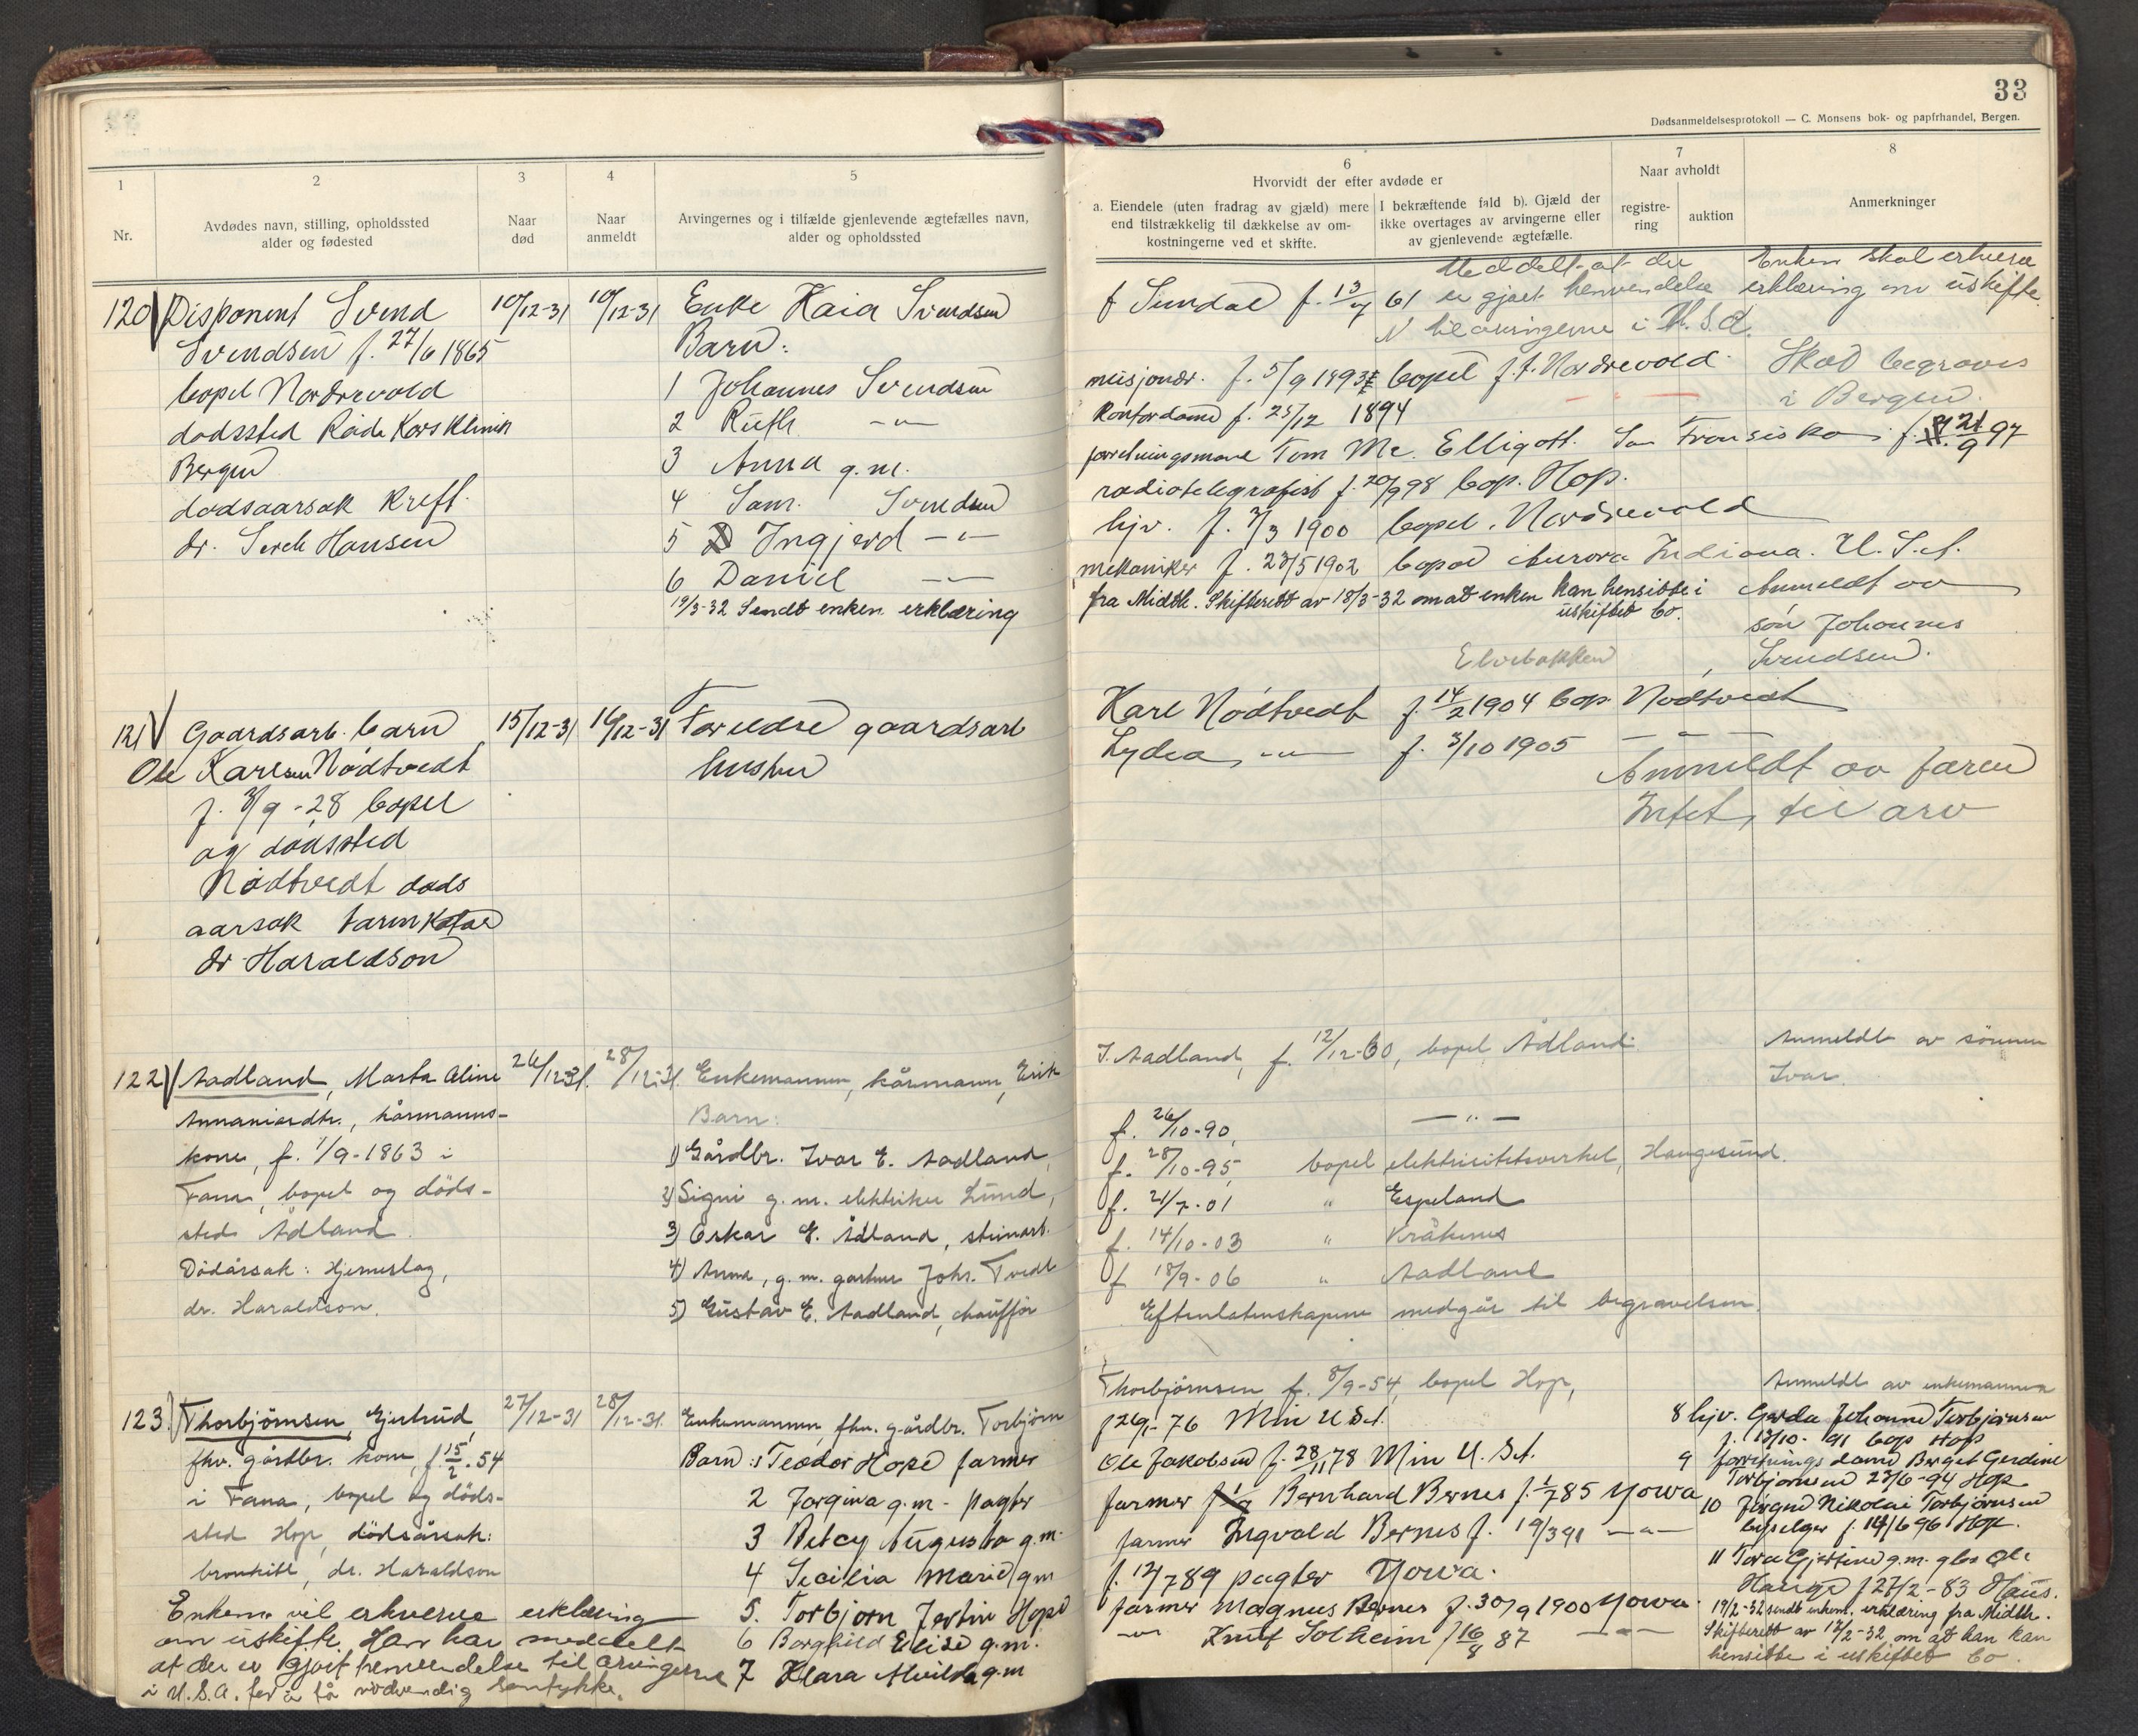 33
Dødsanmeldelsesprotokoll — C. Monsens bok- og papirhandel, Bergen.
1
Nr.
2
Avdødes navn, stilling, opholdssted
alder og fødested
3
Naar
død
4
Naar
anmeldt
5
Arvingernes og i tilfælde gjenlevende ægtefælles navn,
alder og opholdssted
6
Hvorvidt der efter avdøde er
a. Eiendele (uten fradrag av gjæld) mere
end tilstrækkelig til dækkelse av om-
kostningerne ved et skifte.
I bekræftende fald b). Gjæld der
ikke overtages av arvingerne eller
av gjenlevende ægtefælle.
7
Naar avholdt
registre-
ring
auktion
8
Anmerkninger
120 Disponent Svend
Svendsen f. 27/6 1865
bopel Nordrevold
dodssted Röde Kors Klinik
Bergen
dodsaarsak Kreft.
dr. Hansen
10/12-31
10/12-31
Enke Kaia Svendsen
Barn:
1 Johannes Svendsen
2 Ruth -"-
3 Anna g.m.
4 Sam. Svendsen
5 Ingjerd -"-
6 Daniel -"-
19/3-32 Sendt enken erklæring
f Sundal f. 13/4 61
Meddelt at der
er gjort henvendelse
til arvingerne i U.S.A.
Enken skal erhverve
erklæring om uskifte.
misjonær. f. 5/9 1893 bopel p.t. Nordrevold
Skal begraves
i Bergen.
Kontordame f. 25/12 1894
forretningsmand Tom Mc. Elligott. San Fransisko f. 21/9 97
radiotelegrafist f. 20/9 98 bop. Hop.
hjv. f. 3/3 1900 bopel. Nordrevold
mekaniker f. 23/5 1902 bopel Aurora Indiana. U.S.A.
fra Midth. Skifterett av 18/3-32 om at enken kan hensitte i
uskiftet bo.
Anmeldt av
son Johannes
Svendsen.
Elvebakken
121 Gaardsarb. barn
Ole Karlsen Nodtvedt
f. 3/9-28 bopel
og dodssted
Nodtvedt dods
aarsak tarmkatar
dr Haraldson
15/12-31
16/12-31
Foreldre gaardsarb
hustru
Karl Nodtvedt f. 14/2 1904 bop. Nodtvedt
Lydea -"- f. 3/10 1905 -"-
Anmeldt av faren
Intet til arv
122 Aadland, Marta Aline
Annaniasdtr., kårmanns-
kone, f. 1/9-1863 i
Fana, bopel og döds-
sted Ådland.
Dödårsak: Hjerneslag,
dr. Haraldson.
26/12-31.
28/12-31.
Enkemannen, kårmann, Erik
Barn:
1) Gårdbr. Ivar E. Aadland,
2) Signi g.m. elektriker Lund,
3) Oskar E. Ådland, steinarb.
4) Anna, g.m. gartner Johs. Tvedt
5) Gustav E. Aadland, chauffør
I. Aadland, f. 12/12-60, bopel Ådland.
f. 26/10-90, -"-
f. 28/10-95, bopel elektrisitetsverket, Haugesund.
f. 21/7-01 " Espeland
f. 14/10-03 " Kråkenes
f. 18/9-06 " Aadland
Efterlatenskapene medgår til begravelsen.
Anmeldt av sönnen
Ivar.
123. Thorbjörnsen, Gjertrud,
fhv. gårdbr. kone, f. 15/2-54
i Fana, bopel og döds-
sted Hop, dödsårsak:
bronkitt, dr. Haraldson
Enkem. vil erhverve erklæring
om uskifte. Han har meddelt
at der er gjort henvendelse til arvingerne
i U.S.A. for å få nödvendig samtykke.
27/12-31
28/12-31.
Enkemannen, fhv. gårdbr. Torbjörn
Barn: 1 Teodor Hope farmer
2 Jorgina g.m. pagter
3 Betcy Augusta g.m.
4 Secilia Marie g.m
5. Torbjorn Hope
6 Borghild Elise g.m.
7 Klara Alvilda g.m
Thorbjörnsen f. 8/9-54, bopel Hop,
f 26/1-76 Min U.S.A.
Ole Jakobsen f. 28/11 78 Min U.S.A.
farmer Bernhard Bernes f. 1/7 85 Yowa
farmer Ingvald Bernes f. 19/3 91 -"-
f. 12/7 89 pagter Yowa.
farmer Magnus Bernes f. 30/9 1900 Yowa.
-"- Knut Solheim f 16/8 87 -"-
Anmeldt av enkemannen
8 hjv. Gerda Johanne Torbjörnsen
f. 13/10-91 bop Hop
9 forretnings dame Berget Gerdine
Torbjornsen 23/6-94 Hop
10 Jörgen Nikolai Torbjörnsen
f. 14/6 96 Hop.
11 Tora Gjertine g.m. gbr Ole
Hauge f 27/2-83 Haus.
19/2-32 sendt enkem. erklæring fra Midth.
Skifterett av 17/2-32 om at han kan
hensitte i uskiftet bo.